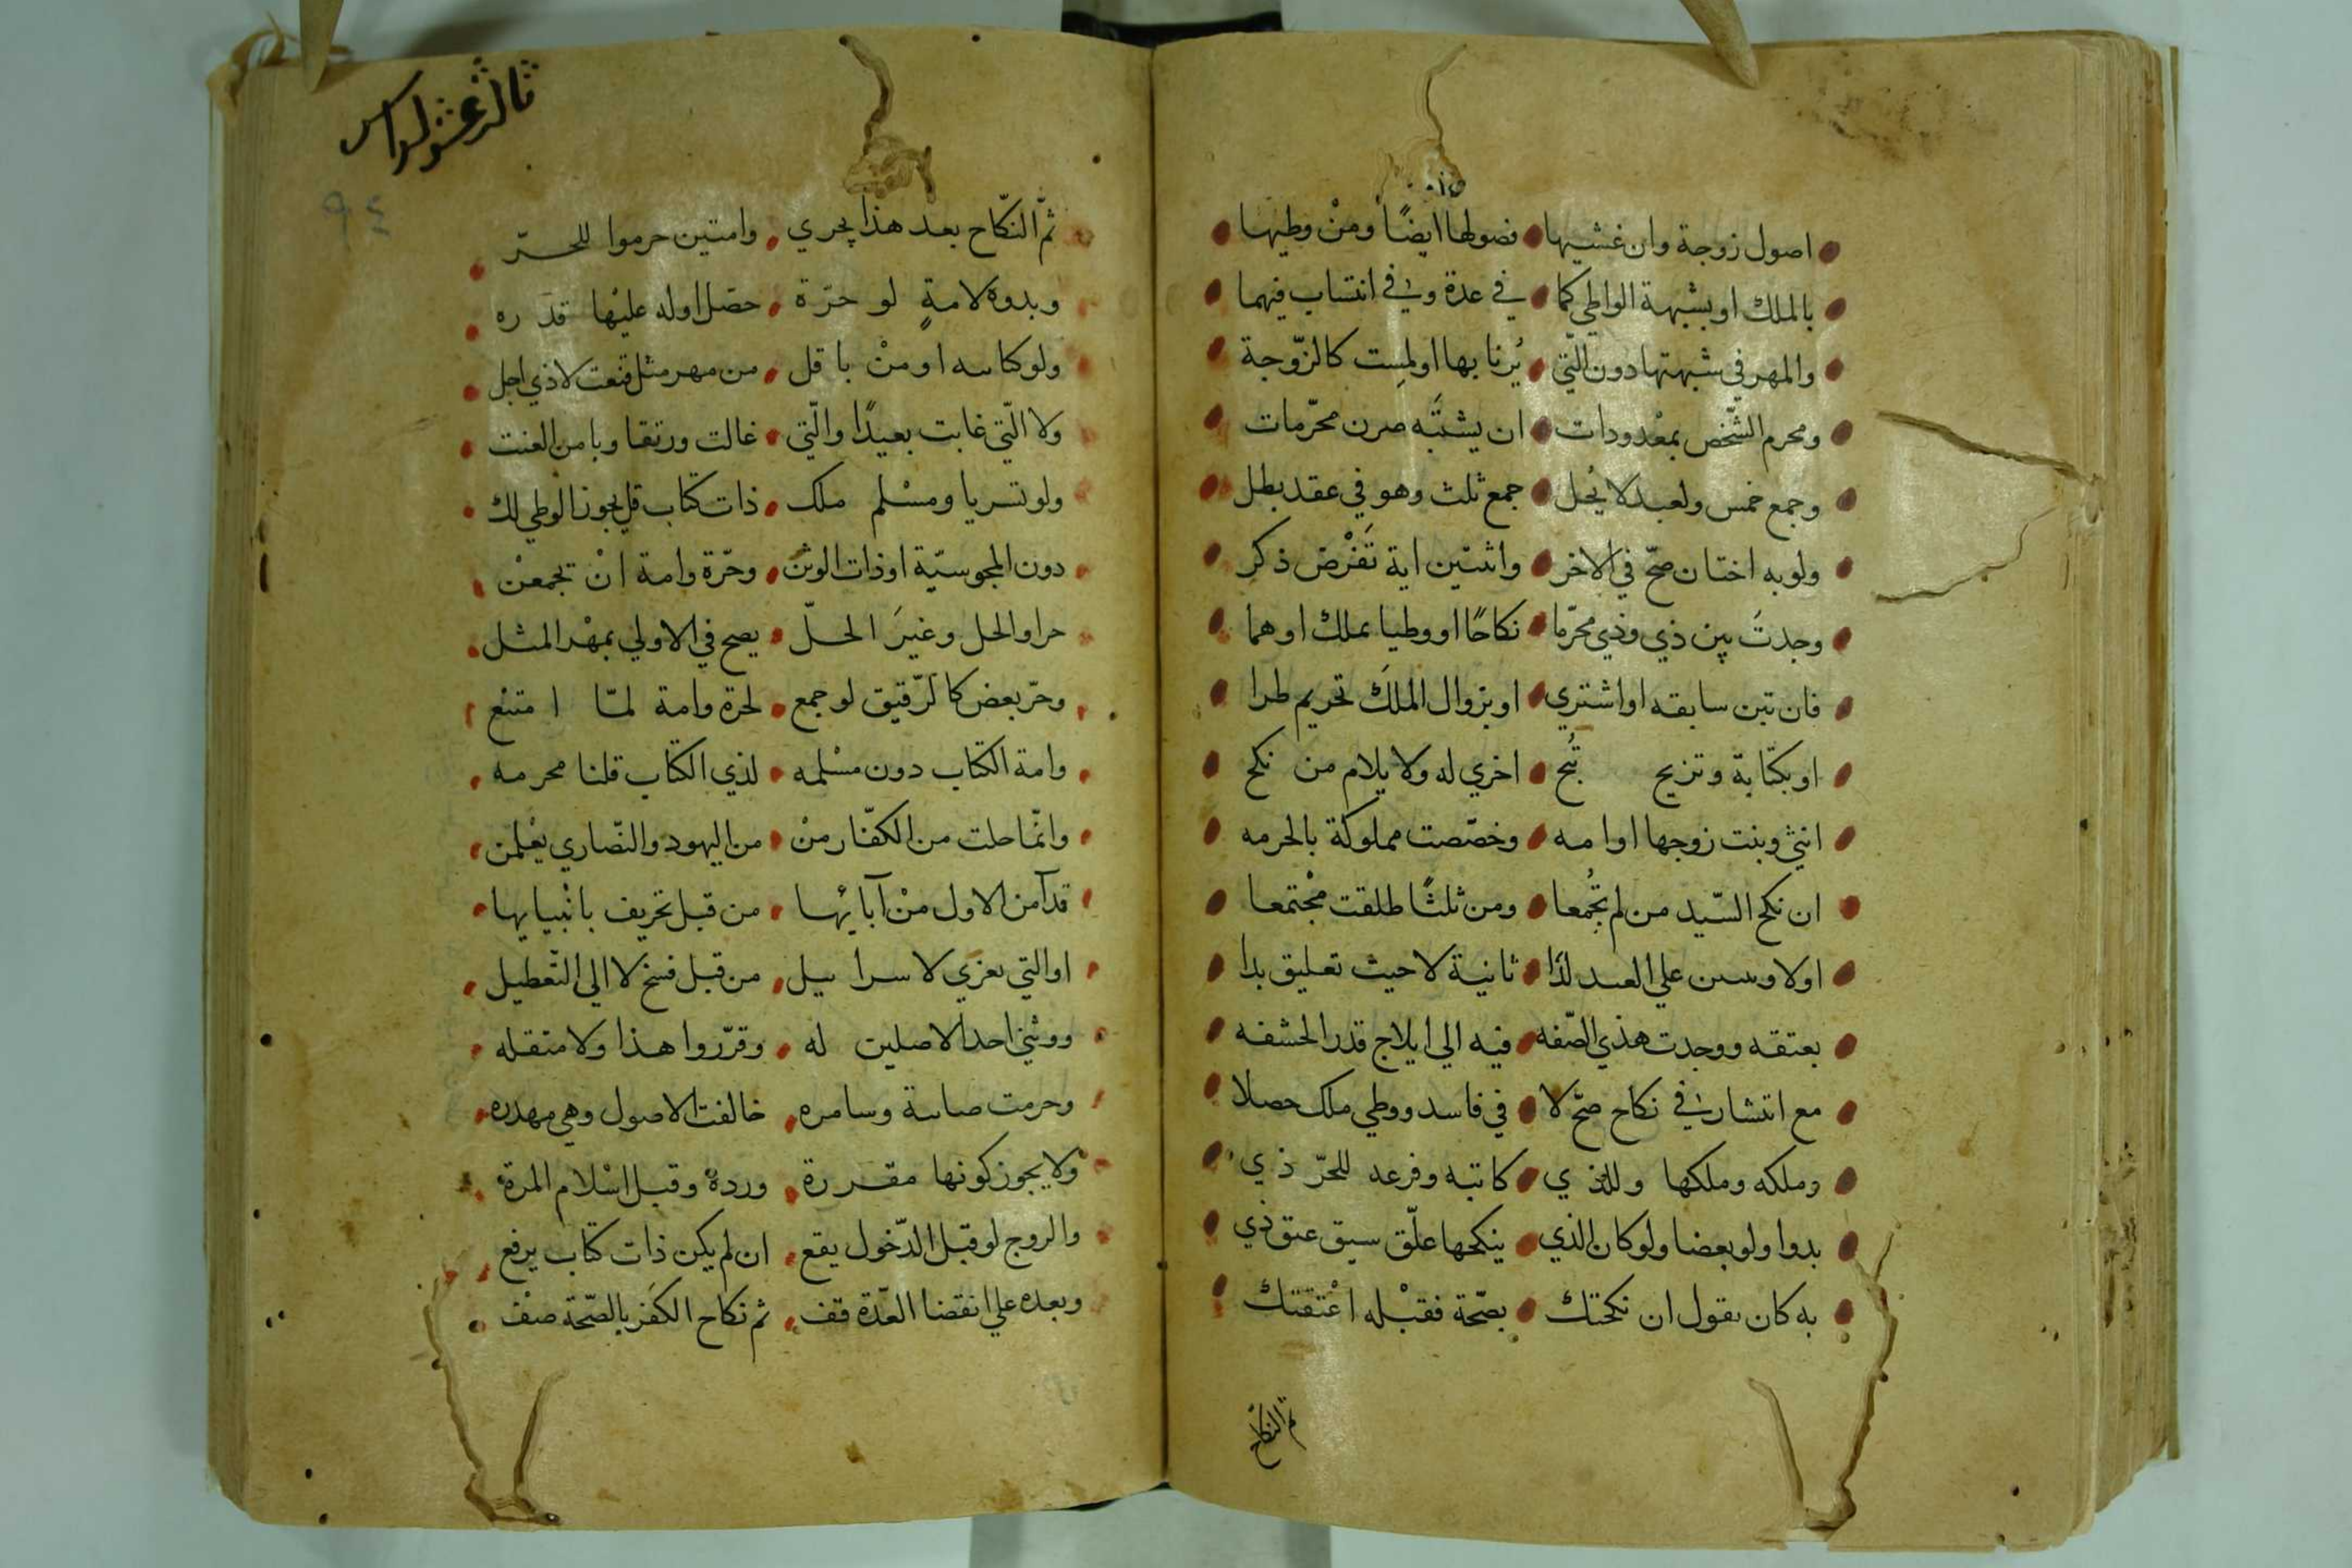 اصول زوجة وان غشيها فصولها ايضًا ومنْ وطيها
بالملك او بشبهة الواطي كما في عدة وفي انتساب فيهما
والمهر في شبهتها دون الّتي يُزنا بها اولمِست كالزّوجة
ومحرم الشّخص بمعْدودات ان يشتَبه صرن محرّمات
وجمع خمس ولعبد لا يُحل جمع ثلث وهو في عقد بطل
ولو به اختان صحّ في الاخر واثنتين اية تَفْرض ذكر
وجدتَ بين ذي وذي محرّما نكاحًا او وطيا بملك اوهما
فان تبن سابقه او اشتري او بزوال الملَك تحريم طرا
او بكتابة وتزيح تُبح اخري له ولا يلام من نكح
انثي وبنت زوجها او امه وخصّصت مملوكة بالحرمه
ان نكح السّيد من لم تُجْمعا ومن ثلثًا طلقت مجْتمعا
اولا علي العبد لذا ثانية لا حيث تعليق بدا
بعتقه ووجدت هذي الصّفه فيه الي ايلاج قدر الحشفه
مع انتشار في نكاح صحّ لا في فاسد ووطي ملك حصلا
وملكه وملكها وللذي كاتبه وفرعه للحرّ ذي
بدوا ولو بعضا ولو كان الذي ينكحها علّق سبق عتق ذي
به كان يقول ان نكحتك بصّحة فقبْله اعْتقتك
ثم النكاح
ثالث عشر
٩٤
ثمّ النّكاح بعد هذا يجري وامتين حرموا للحرّ
وبدوه لامةٍ لو حرّة حصّل اوله عليْها قدره
ولو او منْ باقل من مهر مثل قنعت لا ذي اجل
ولا الّتي غابت بعيدًا والّتي غالت ورتقا وبامن العنت
ولو تسريا ومسْلم ملك ذات كتاب قل يجوز الوطي لك
دون المجوسيّة او ذات الوثن وحّرة وامة انْ تجمعنْ
حر او الحل وغيرَ الحلّ يصح في الاولي بمهْر المثل
وحرّ بعض كالرّقيق لو جمع لحرة وامة لمّا امتنع
وامة الكتاب دون مسْلمه لذي الكتاب قلنا محرمه
وانّما حلت من الكفّار منْ من اليهود والنّصاري يعْلمن
قد آمن الاول منْ آبائها من قبل تحريف بانْبيايها
او التي تعزي لاسراييل من قبل فسخ لا الي التّعطيل
ووثني احد الاصلين له وقرّروا هذا ولا متنقله
وحرمت صابية وسامره خالفت الاصول وهي مهدره
ولا يجوز كونها مقررة ورده وقبل اسْلام المرة
والزوج لو قبل الدّخول يقع ان لم يكن ذات كتاب يرفع
وبعده علي انقضا العّدة قف ثم نكاح الكفر بالصّحة صفْ